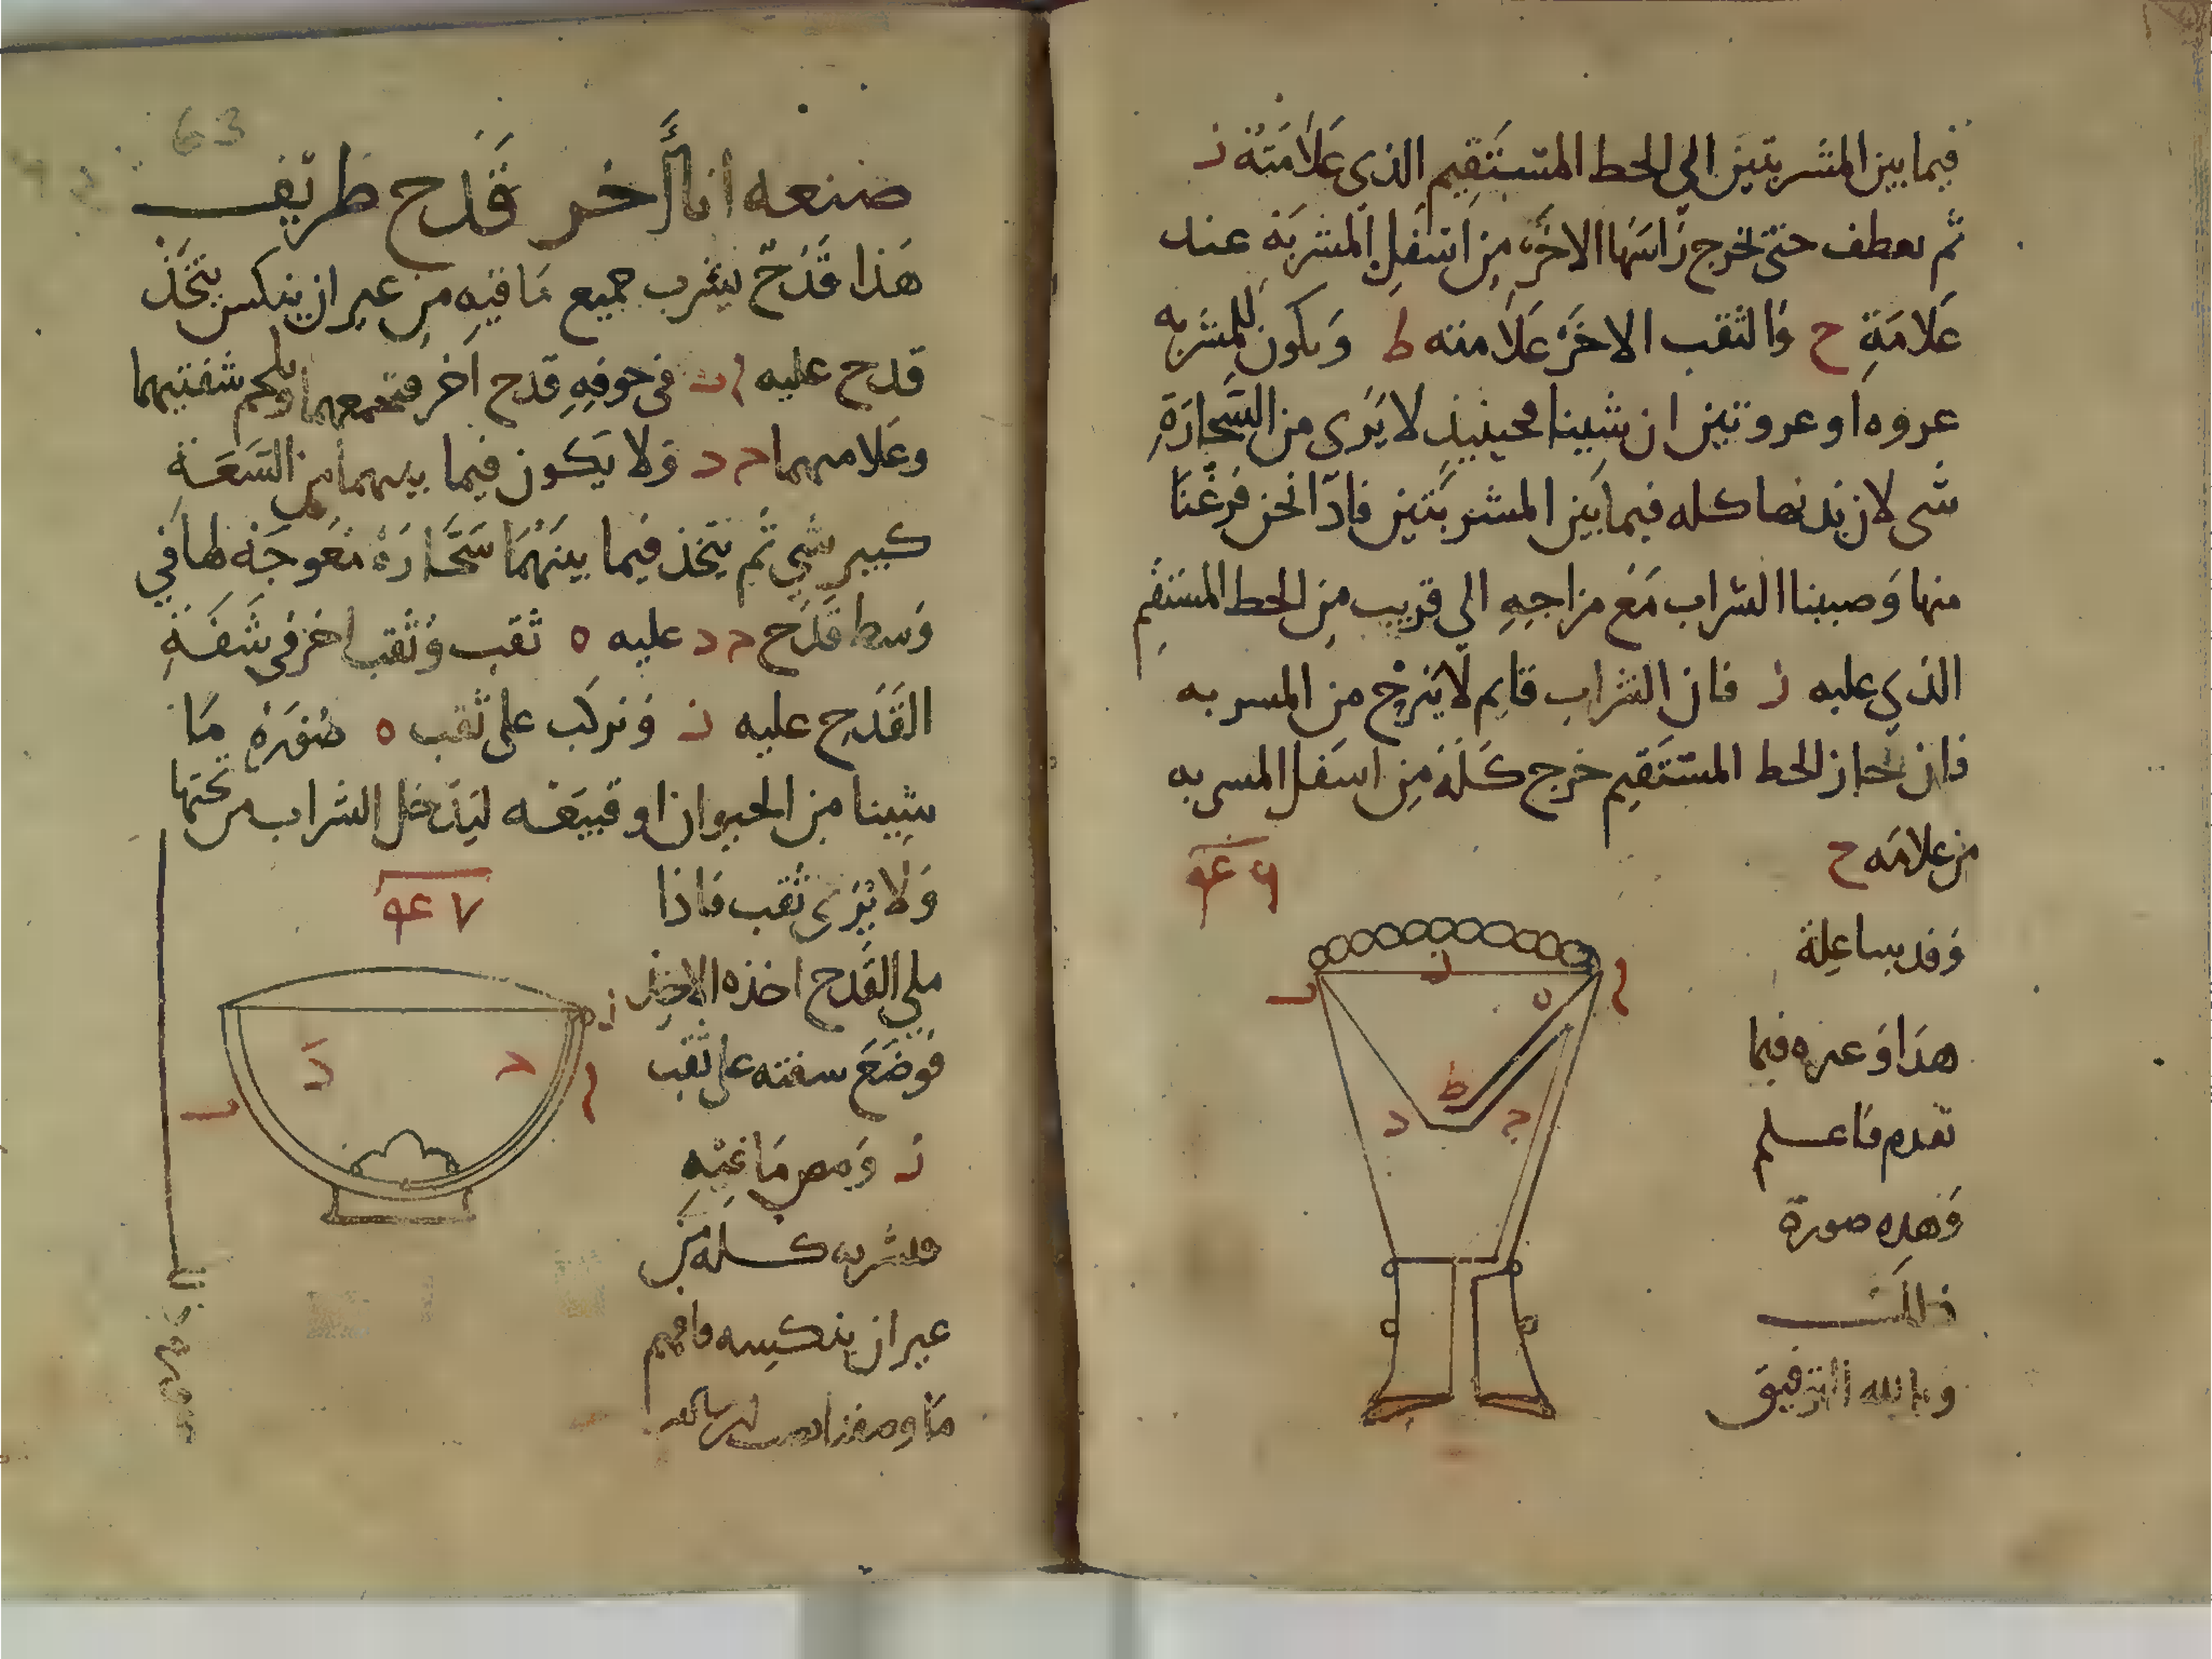 فيما بين المشربتين الى الخط المستقيم الذي علامته ز
ثم يعطف حتى يخرج راسها الاخر من اسفل المشربة عند
علامة ح والثقب الاخر علامته ط ويكون للمشربه
عروه او عروتين ان شينا فحينيذ لا يرى من السحارة
شى لان بدنها كله فيما بين المشربتين فاذا نحن فرغنا
منها وصببنا الشراب مع مزاجه الى قريب من الخط المستقيم
الذي عليه ز فان الشراب قايم لا يخرج من المسربه
فان جاز الخط المستقيم خرج كله من اسفل المسربه
من علامه ح
وقد بينا علة
هذا وغيره فيما
تقدم فاعلم
وهذه صورة
ذلك
وبالله التوفيق
ز
ا
ب
ه
ط
د
ج
63
صنعه انا أخر قدح طريف
هذا قدح يشرب جميع ما فيه من غير ان ينكس يتخذ
قدح عليه ا ب في جوفه قدح اخر فتجمعهما ويلحم شفتيهما
وعلامتهما ح د ولا يكون فيما بينهما من السعة
كبير شي ثم يتخذ فيما بينهما سحارة معوجة طرفها في
وسط قدح ح د عليه ه ثقب وثقب اخر في شفة
القدح عليه ز ونركب على ثقب ه صورة ما
شينا من الحيوان او قبيعه ليدخل الشراب من تحتها
ولا يرى ثقب فاذا
ملي القدح اخذه الاخذ
فوضع سفته على ثقب
ز ومص ما فيه
فيشربه كله من
غير ان ينكسه فافهم
ما وصفنا
٧
ز
ا
ب
د
ح